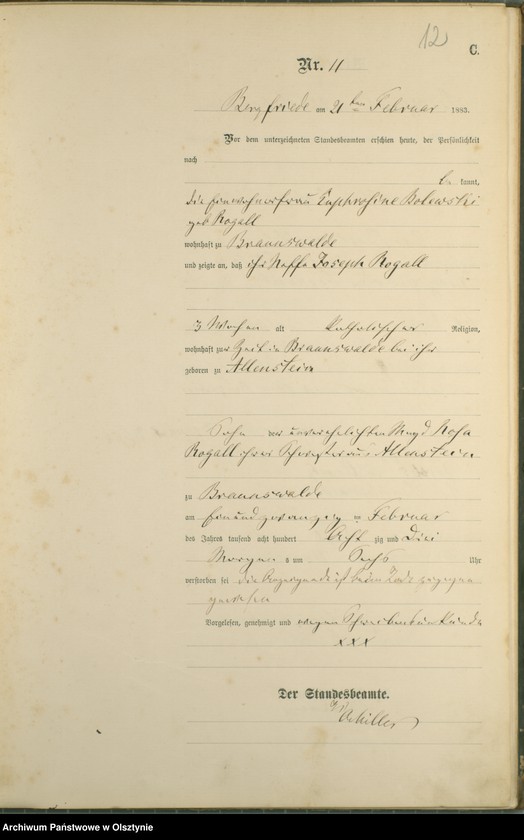 12
C.
Nr. 11
Bergfriede am 21ten Februar 1883.
Vor dem unterzeichneten Standesbeamten erschien heute, der Persönlichkeit
nach
be kannt,
die Einwohnerfrau Euphrosine Bolewski
geb Rogall
wohnhaft zu Braunswalde
und zeigte an, daß ihr Neffe Joseph Rogall
3 Wochen alt Katholischer Religion,
wohnhaft zur Zeit in Braunswalde bei ihr
geboren zu Allenstein
Sohn der unverehelichten Magd Rosa
Rogall ihrer Schwester aus Allenstein
zu Braunswalde
am Einundzwanzig ten Februar
des Jahres tausend acht hundert Acht zig und Drei
Morgens um Sechs Uhr
verstorben sei die Anzeigende ist bei dem Tode zugegen
gewesen
Vorgelesen, genehmigt und wegen Schreibensunkunde
xxx
Der Standesbeamte.
Schiller
Archiwum Państwowe w Olsztynie